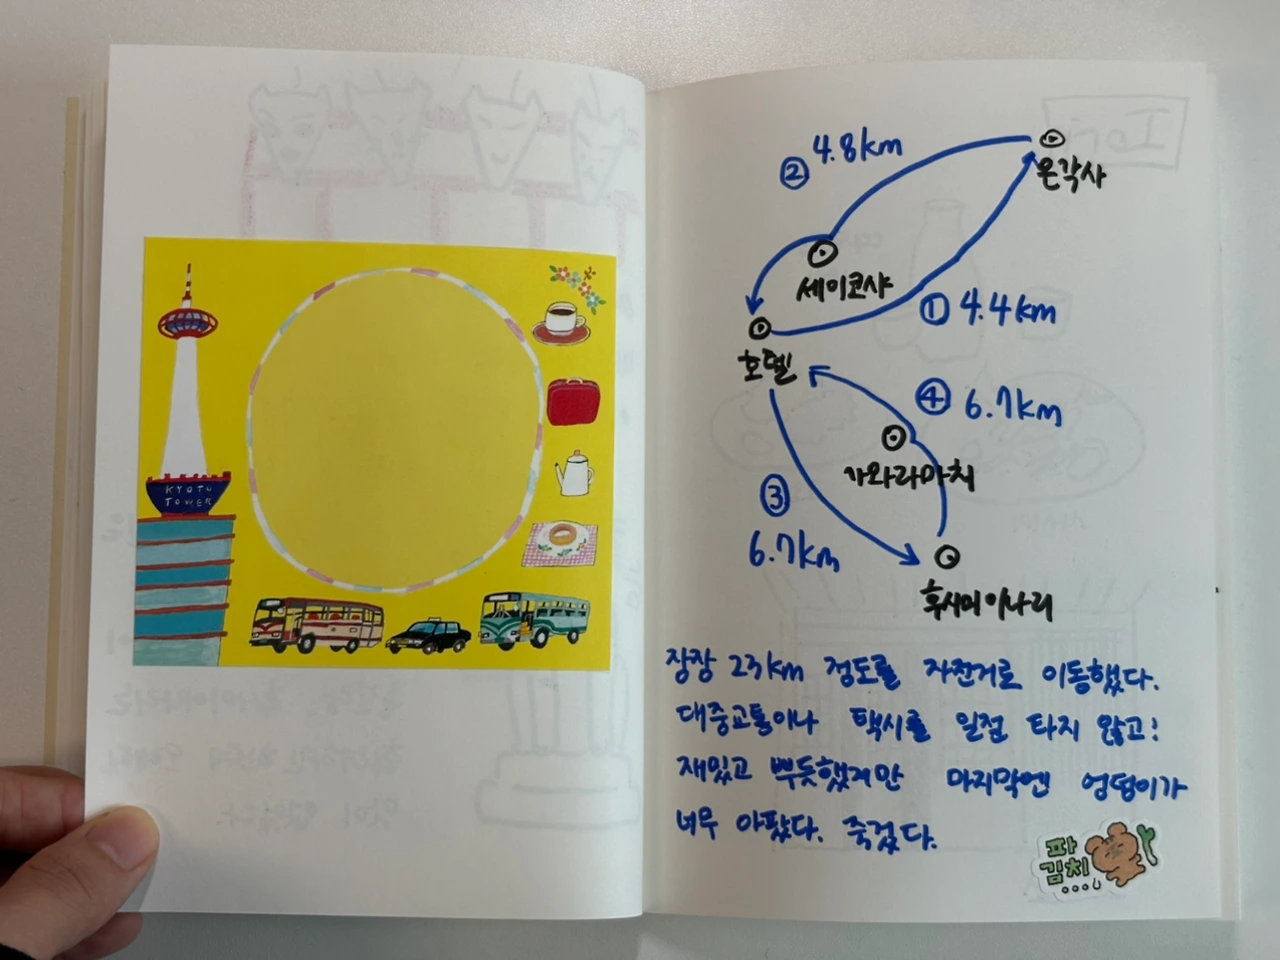 KYOTO
TOWER
② 4.8km
은각사
세이코샤
① 4.4km
호텔
④ 6.7km
가와라마치
③
6.7km
후시미이나리
장장 23km 정도를 자전거로 이동했다.
대중교통이나 택시를 일절 타지 않고!
재밌고 뿌듯했지만 마지막엔 엉덩이가
너무 아팠다. 죽겠다.
파
김치